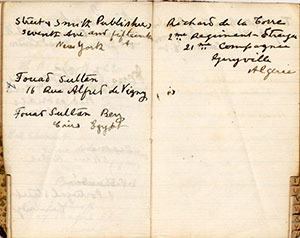 Street & Smith Publishers
seventh Ave and fifteenth
New York
Fouad Sultan
16 Rue Alfred de Vigny
Fouad Sultan Bey
Cairo Egypt
Richard de la Torre
2me Regiment-Etranger
21me Compagnie
Geryville
Algerie